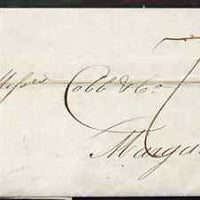 Messrs Cobb & Co
Margate